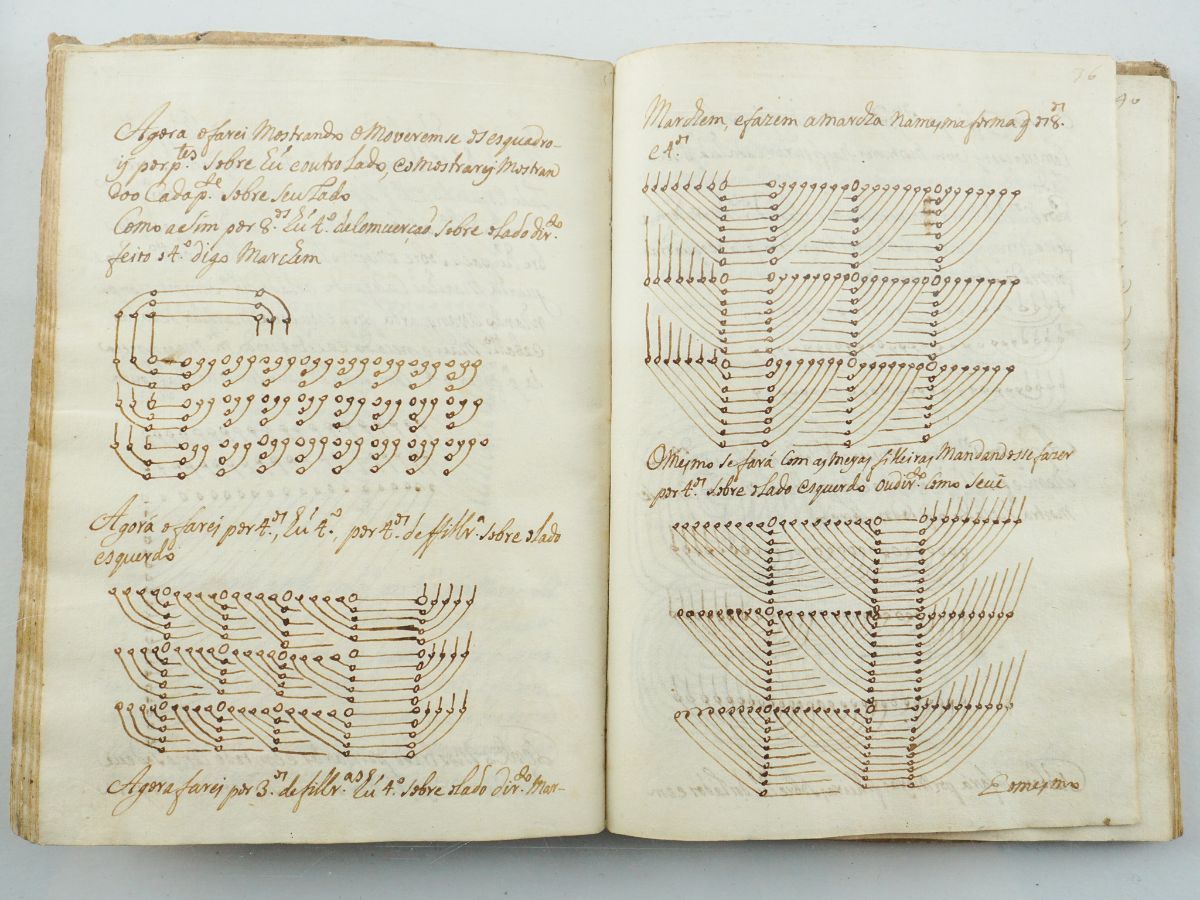 Agora o farei Mostrando o Moveremse os esquadro-
is por p.tes sobre hũ e outro lado, e o Mostrarei Mostran
doo Cada p.te sobre seu lado
Como aesim por 8.os hũ 4.º de Comverçaõ sobre o lado dir.to
feito o 4.º digo Marchem
Agorá o farei por 4.os, hũ 4.º, por 4.os de ffillr.as sobre o lado
esquerdo
Agora farei por 3.os de fillr.as hũ 4.º sobre o lado dir.to Mar-
36
Marchem, e fazem a marcha Na mesma forma q os 8.os
e 4.os
O Mesmo se fará Com as meyas filleiras Mandandosse fazer
por 4.os sobre o lado esquerdo ou dir.to Como se ve
E o mesmo